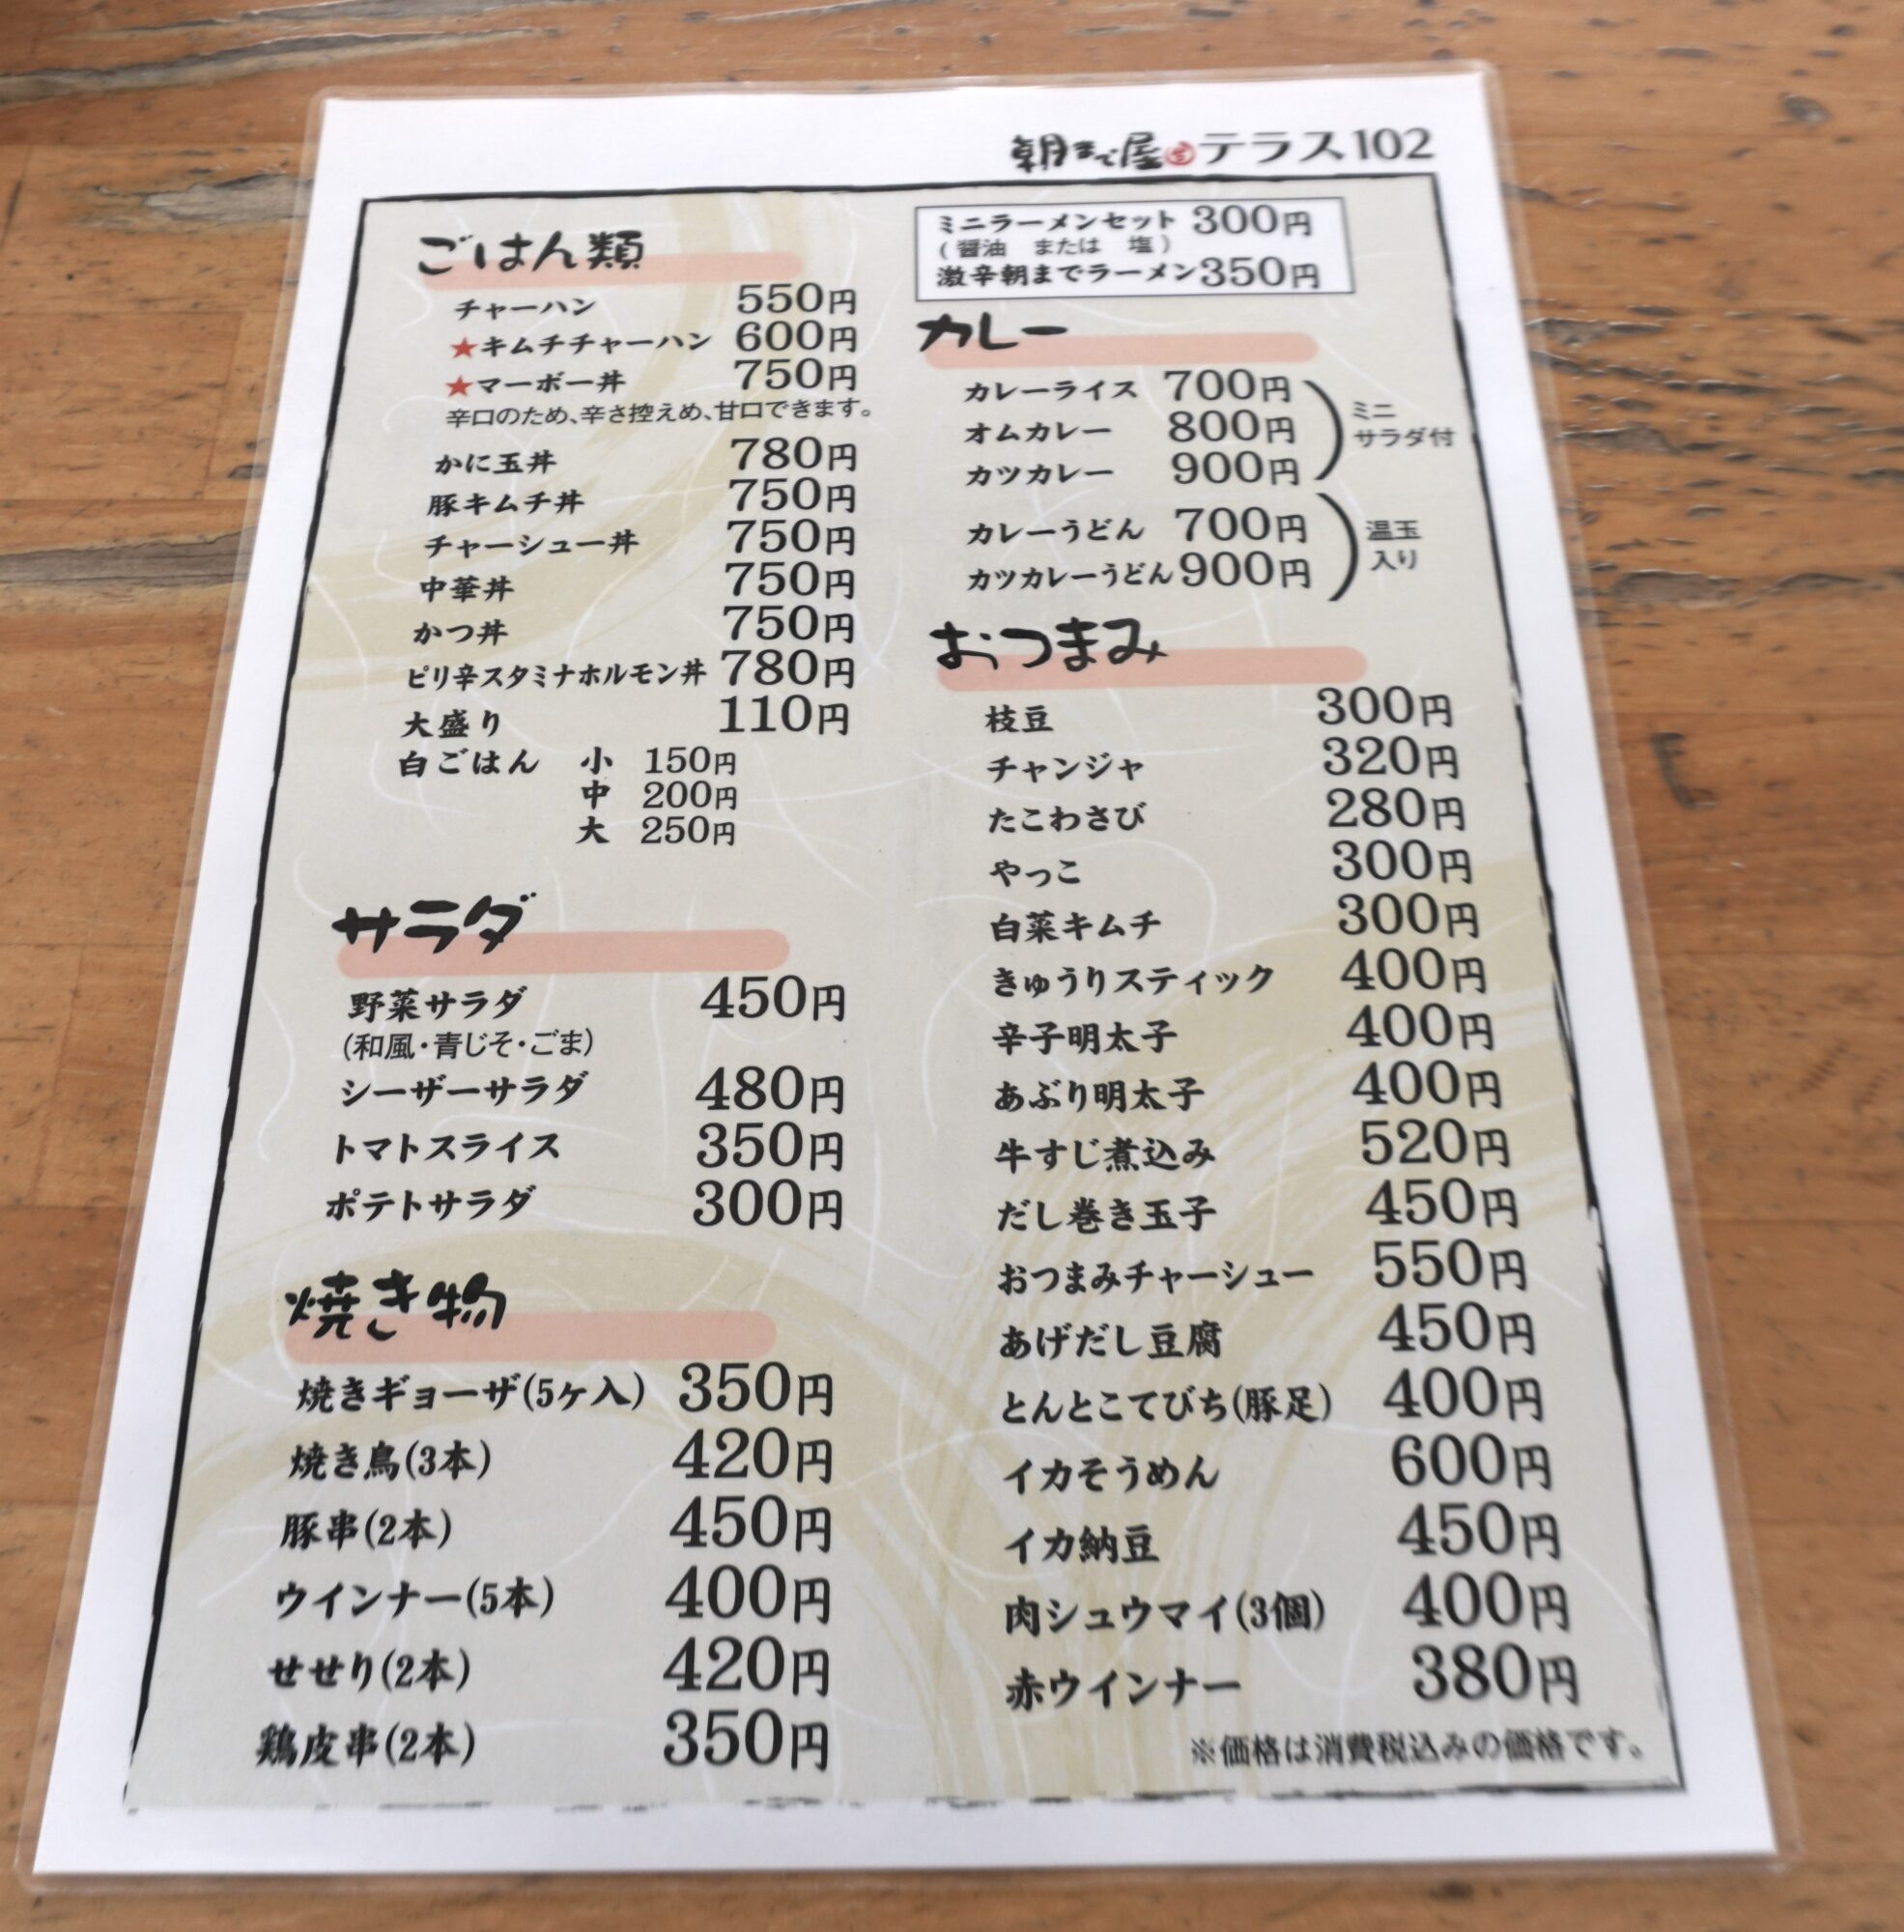 朝まで屋 テラス102
ごはん類
チャーハン 550円
★キムチチャーハン 600円
★マーボー丼 750円
辛口のため、辛さ控えめ、甘口できます。
かに玉丼 780円
豚キムチ丼 750円
チャーシュー丼 750円
中華丼 750円
かつ丼 750円
ピリ辛スタミナホルモン丼 780円
大盛り 110円
白ごはん 小 150円
中 200円
大 250円
サラダ
野菜サラダ 450円
(和風・青じそ・ごま)
シーザーサラダ 480円
トマトスライス 350円
ポテトサラダ 300円
焼き物
焼きギョーザ(5ヶ入) 350円
焼き鳥(3本) 420円
豚串(2本) 450円
ウインナー(5本) 400円
せせり(2本) 420円
鶏皮串(2本) 350円
ミニラーメンセット 300円
(醤油 または 塩)
激辛朝までラーメン 350円
カレー
カレーライス 700円
オムカレー 800円
カツカレー 900円
ミニ
サラダ付
カレーうどん 700円
カツカレーうどん 900円
温玉
入り
おつまみ
枝豆 300円
チャンジャ 320円
たこわさび 280円
やっこ 300円
白菜キムチ 300円
きゅうりスティック 400円
辛子明太子 400円
あぶり明太子 400円
牛すじ煮込み 520円
だし巻き玉子 450円
おつまみチャーシュー 550円
あげだし豆腐 450円
とんとこてびち(豚足) 400円
イカそうめん 600円
イカ納豆 450円
肉シュウマイ(3個) 400円
赤ウインナー 380円
※価格は消費税込みの価格です。